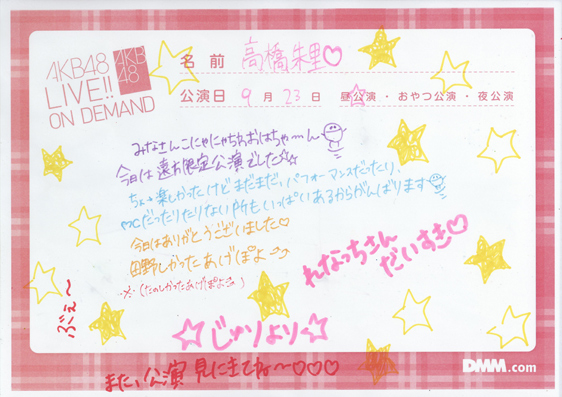 AKB48
LIVE!!
ON DEMAND
AKB
48
名前 高橋朱里♡
公演日 9月23日 昼公演・おやつ公演・夜公演
みなさんこにゃにゃちわおはちゃーん
今日は遠方限定公演でした☆
ちょー楽しかったけどまだまだ、パフォーマンスだったり、
MCだったりたりない所もいっぱいあるからがんばります
今日はありがとうございました♡
田野しかったあげぽよ
※(たのしかったあげぽよ)
れなっちさん
だいすき♡
ぶぇ〜
☆じゅりより☆
また、公演見にきてね〜♡♡♡
DMM.com